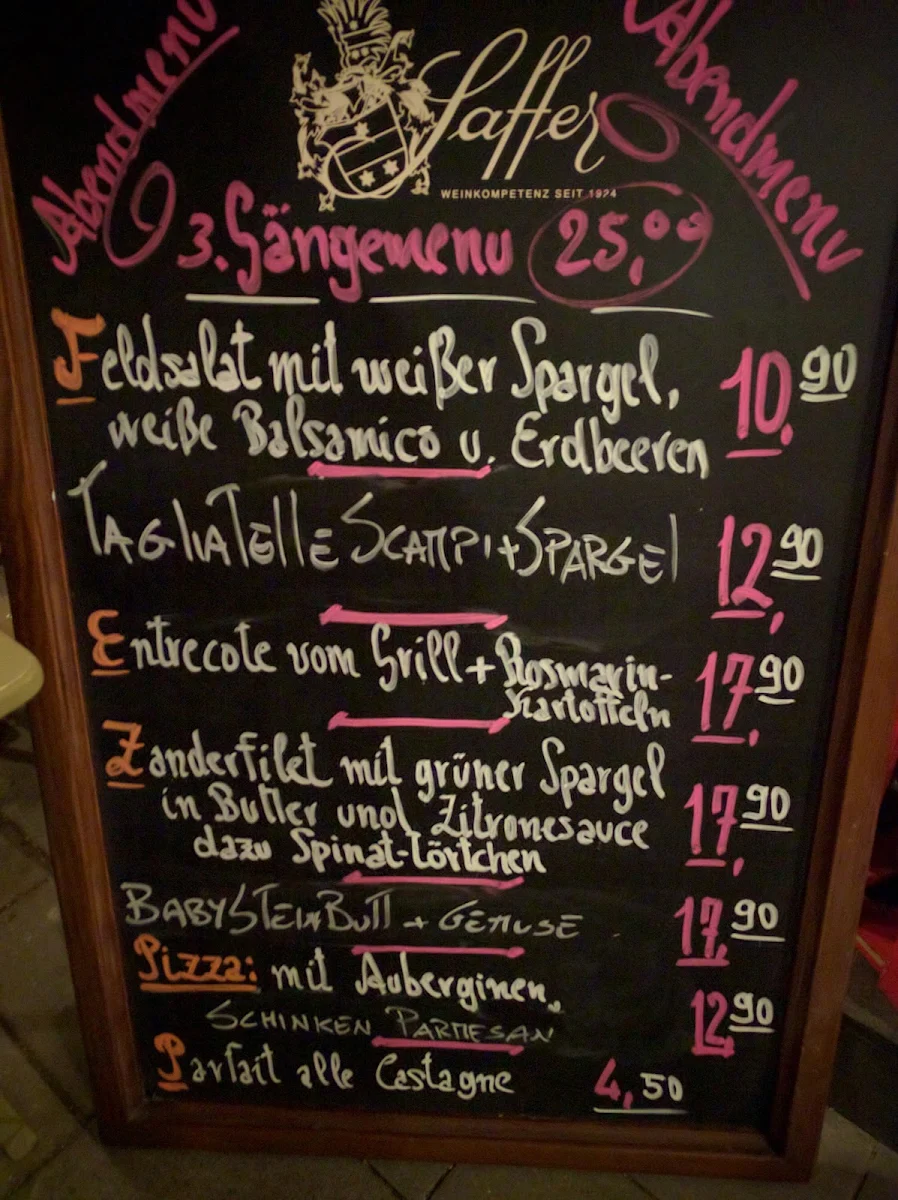 Abendmenu
Abendmenu
Saffer
WEINKOMPETENZ SEIT 1924
3. Gängemenu 25,00
Feldsalat mit weißer Spargel, 10.90
weiße Balsamico u. Erdbeeren
TAGLIATELLE SCAMPI + SPARGEL 12,90
Entrecote vom Grill + Rosmarin- 17,90
Kartoffeln
Zanderfilet mit grüner Spargel
in Butter und Zitronesauce 17,90
dazu Spinat-Törtchen
BABY STEINBUTT + GEMUSE 17,90
Pizza: mit Auberginen,, 12,90
SCHINKEN PARMESAN
Parfait alle Castagne 4,50